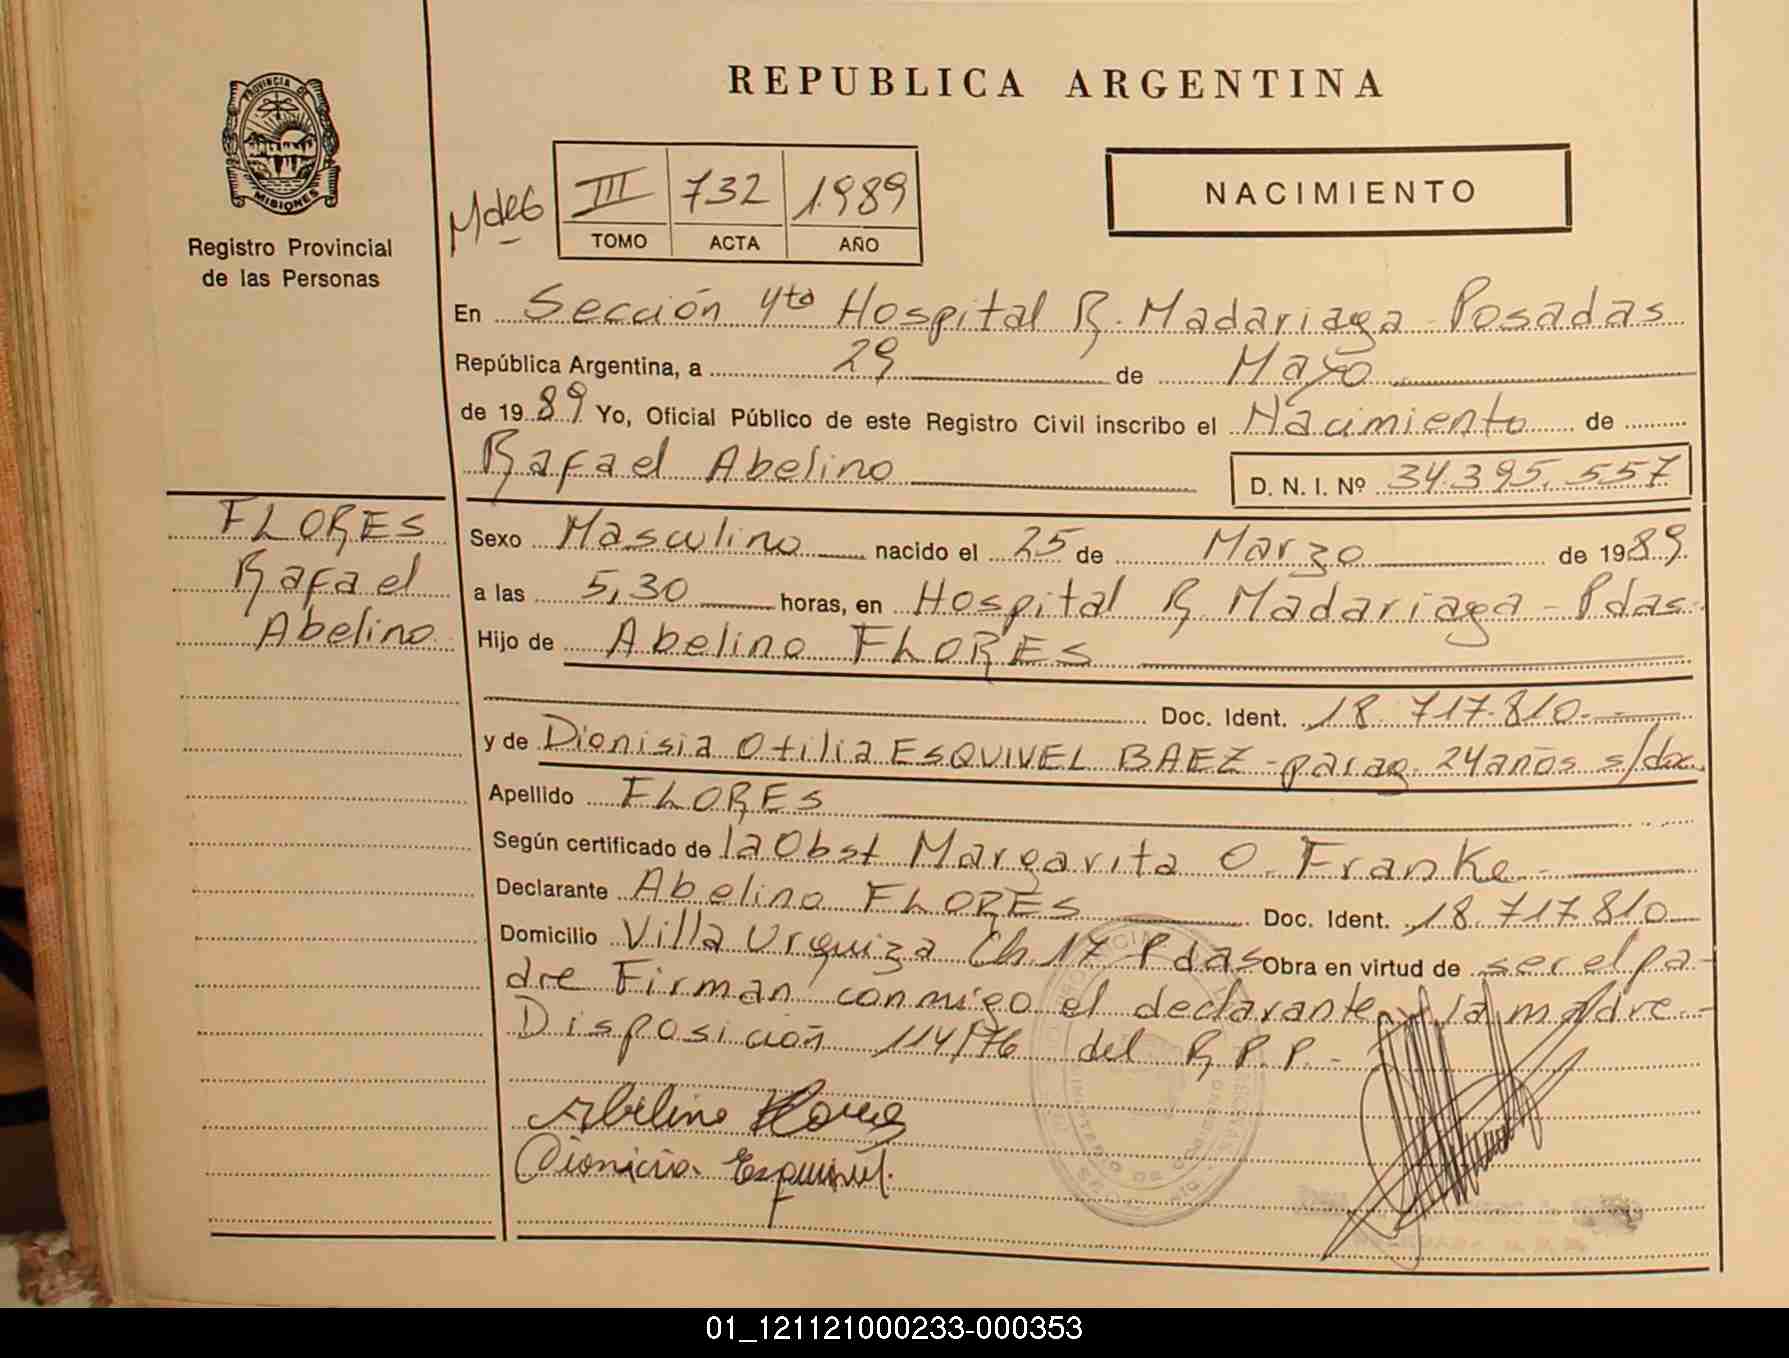 REPUBLICA ARGENTINA
PROVINCIA DE
MISIONES
Registro Provincial
de las Personas
MdeG
III 732 1989
TOMO ACTA AÑO
NACIMIENTO
En Sección 4ta Hospital R. Madariaga Posadas
República Argentina, a 29 de Mayo
de 1989 Yo, Oficial Público de este Registro Civil inscribo el Nacimiento de
Rafael Abelino
D. N. I. Nº 34.395.557
FLORES
Rafael
Abelino
Sexo Masculino nacido el 25 de Marzo de 1989.
a las 5,30 horas, en Hospital R. Madariaga - Pdas.
Hijo de Abelino FLORES
Doc. Ident. 18.717.810.-
y de Dionisia Otilia ESQUIVEL BAEZ - parag. 24 años s/doc.
Apellido FLORES
Según certificado de la Obst Margarita O. Franke.-
Declarante Abelino FLORES Doc. Ident. 18.717.810
Domicilio Villa Urquiza Ch. 17 Pdas Obra en virtud de ser el pa-
dre Firman conmigo el declarante y la madre.-
Disposición 114/76 del R.P.P.-
Abelino Flores
Dionicia Esquivel.
01_121121000233-000353